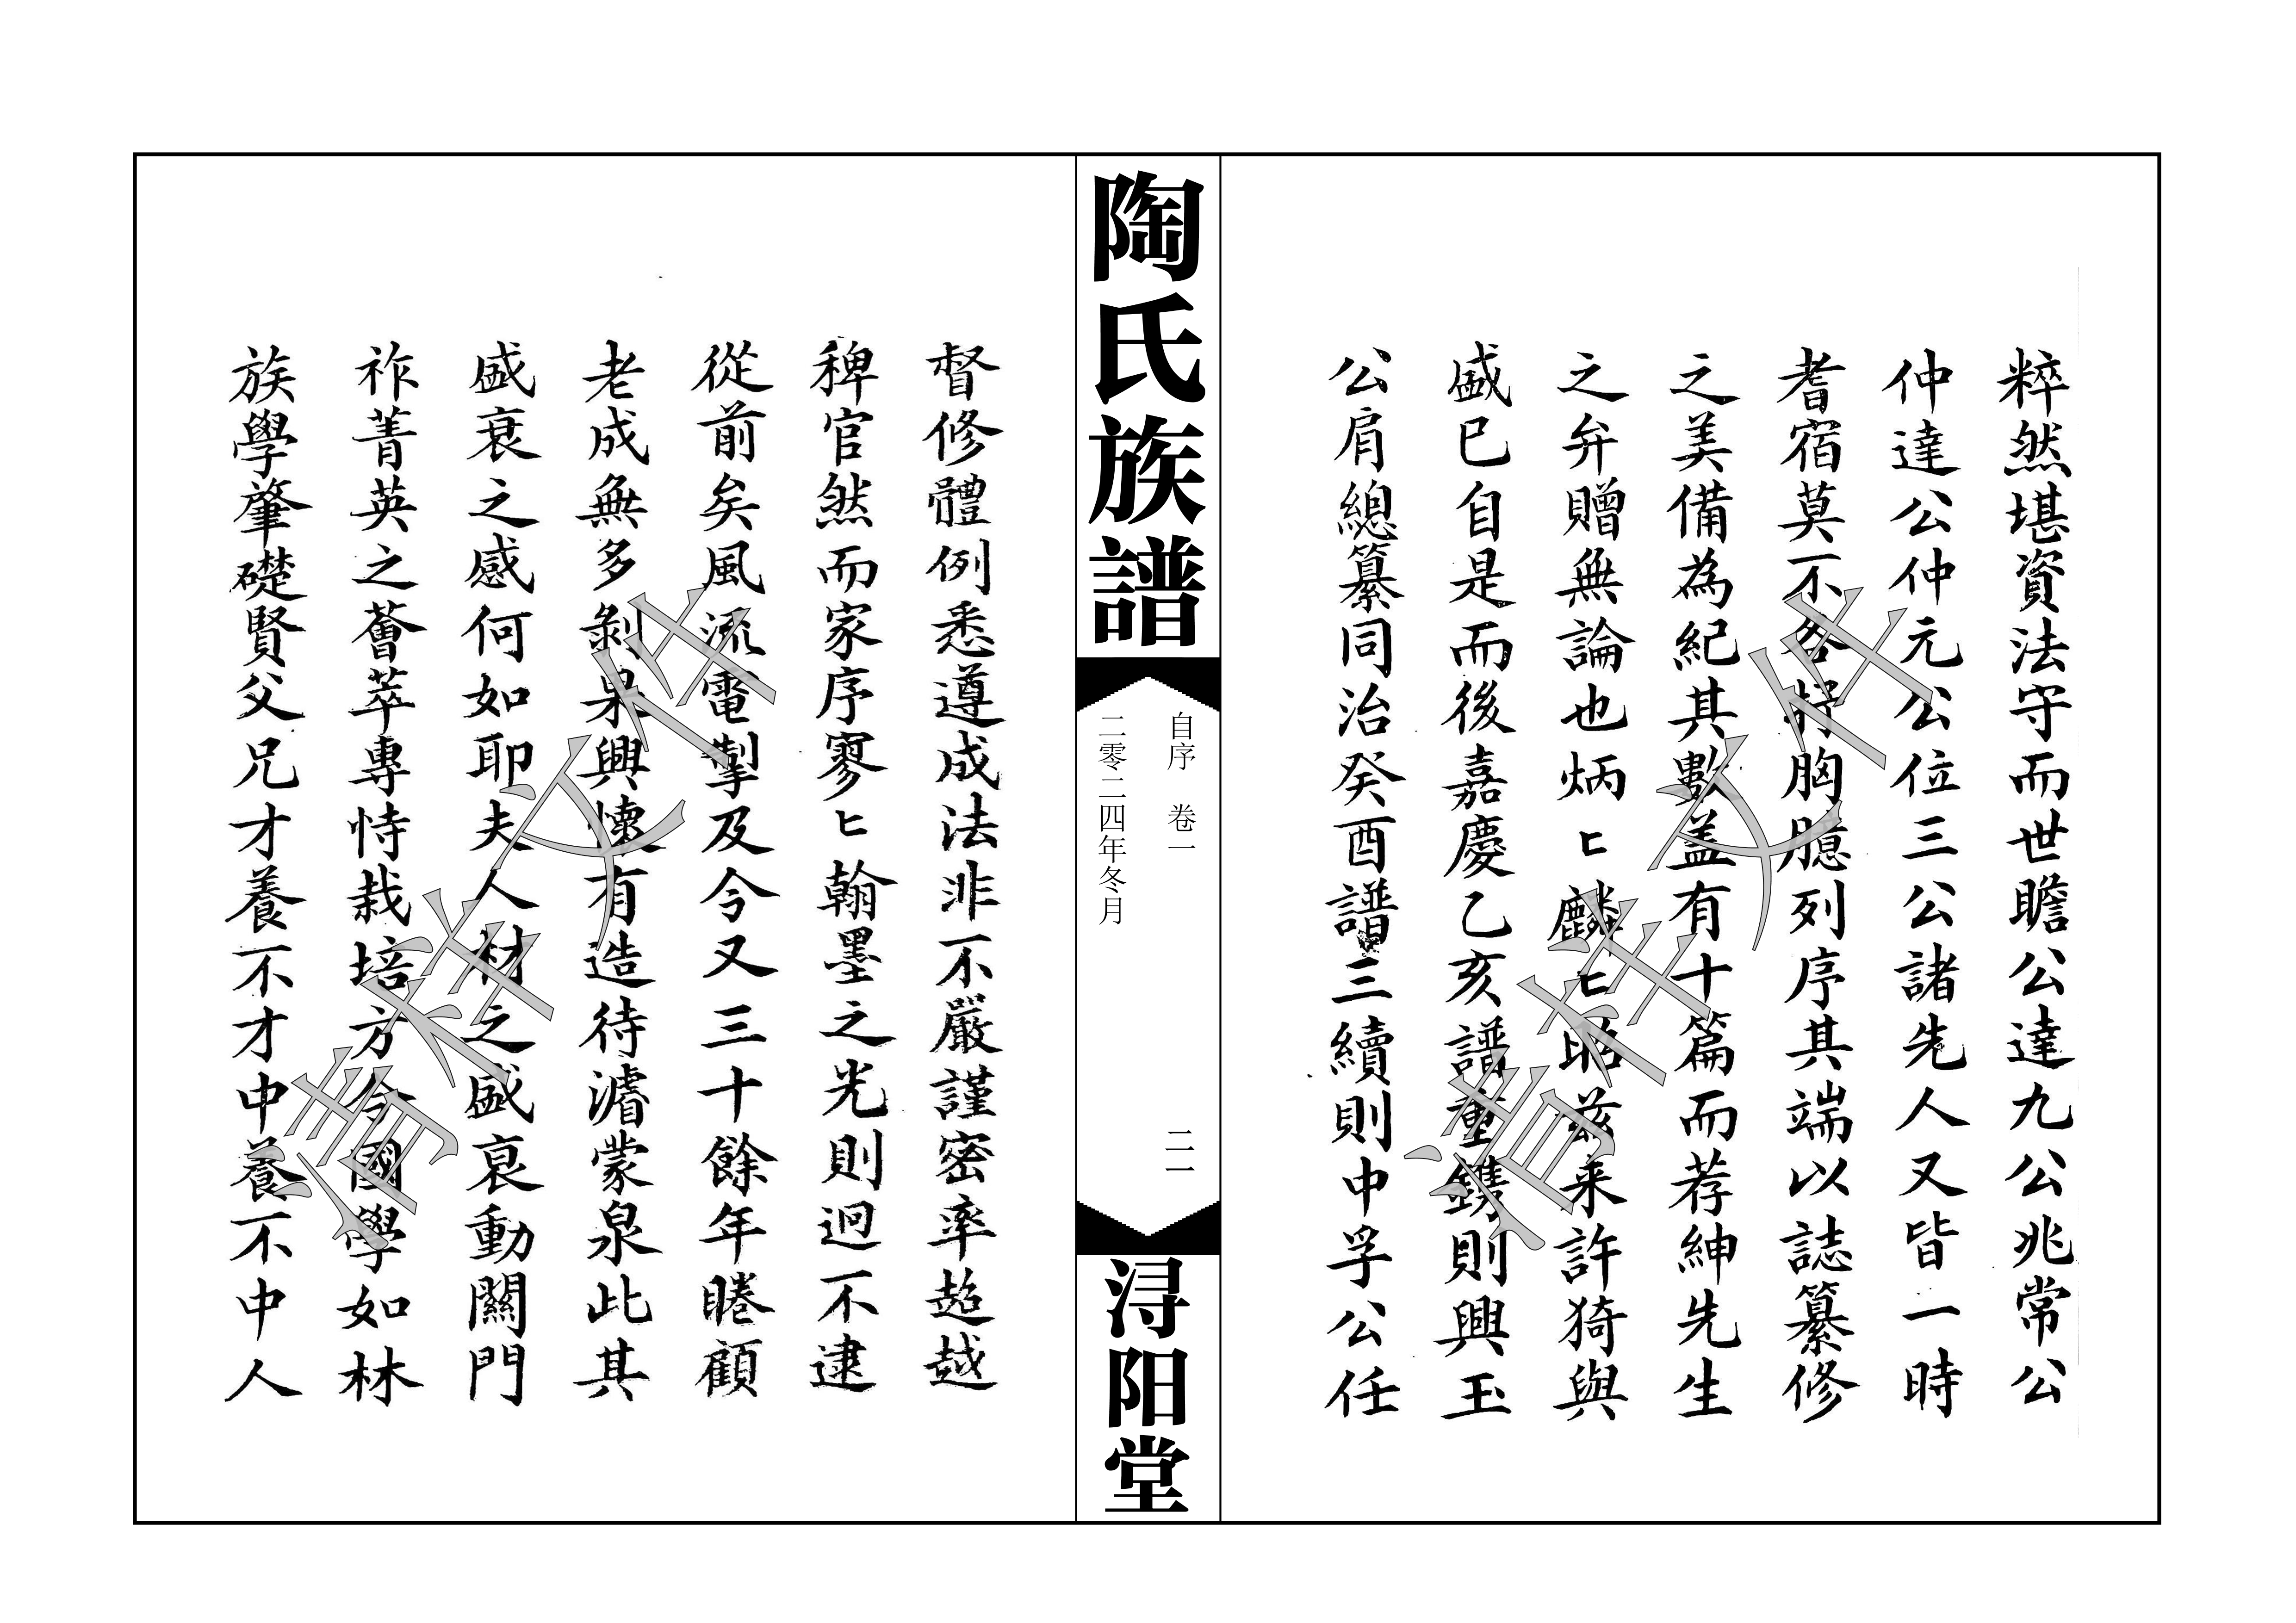 粹然堪資法守而世瞻公達九公兆常公
仲達公仲元公位三公諸先人又皆一時
耆宿莫不各抒胸臆列序其端以誌纂修
之美備為紀其數盖有十篇而荐紳先生
之弁贈無論也炳匕麟匕昭茲来許猗與
盛已自是而後嘉慶乙亥譜重鐫則興玉
公肩總纂同治癸酉譜三續則中孚公任
陶氏族譜
自序 卷一
二零二四年冬月
二一
浔阳堂
督修體例悉遵成法非不嚴謹密率超越
稗官然而家序寥匕翰墨之光則迥不逮
從前矣風流電掣及今又三十餘年睠顧
老成無多剝果興懷有造待濬蒙泉此其
盛衰之感何如耶夫人材之盛衰動關門
祚菁英之薈萃專恃栽培方今國學如林
族學肇礎賢父兄才養不才中養不中人
清祥文化
清祥文化